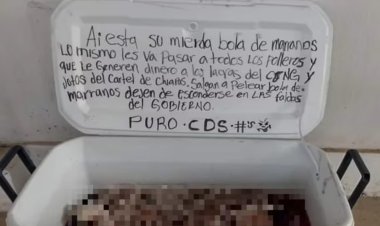 Ai esta su mierda bola de marranos
Lo mismo les va pasar a todos los polleros y
que le Generen dinero a las lagras del CJNG y
Jotos del Cartel de Chiapas. Salgan a Pelear bola de
marranos dejen de Esconderse en LAS faldas
del GOBIERNO.
PURO.CDS.#